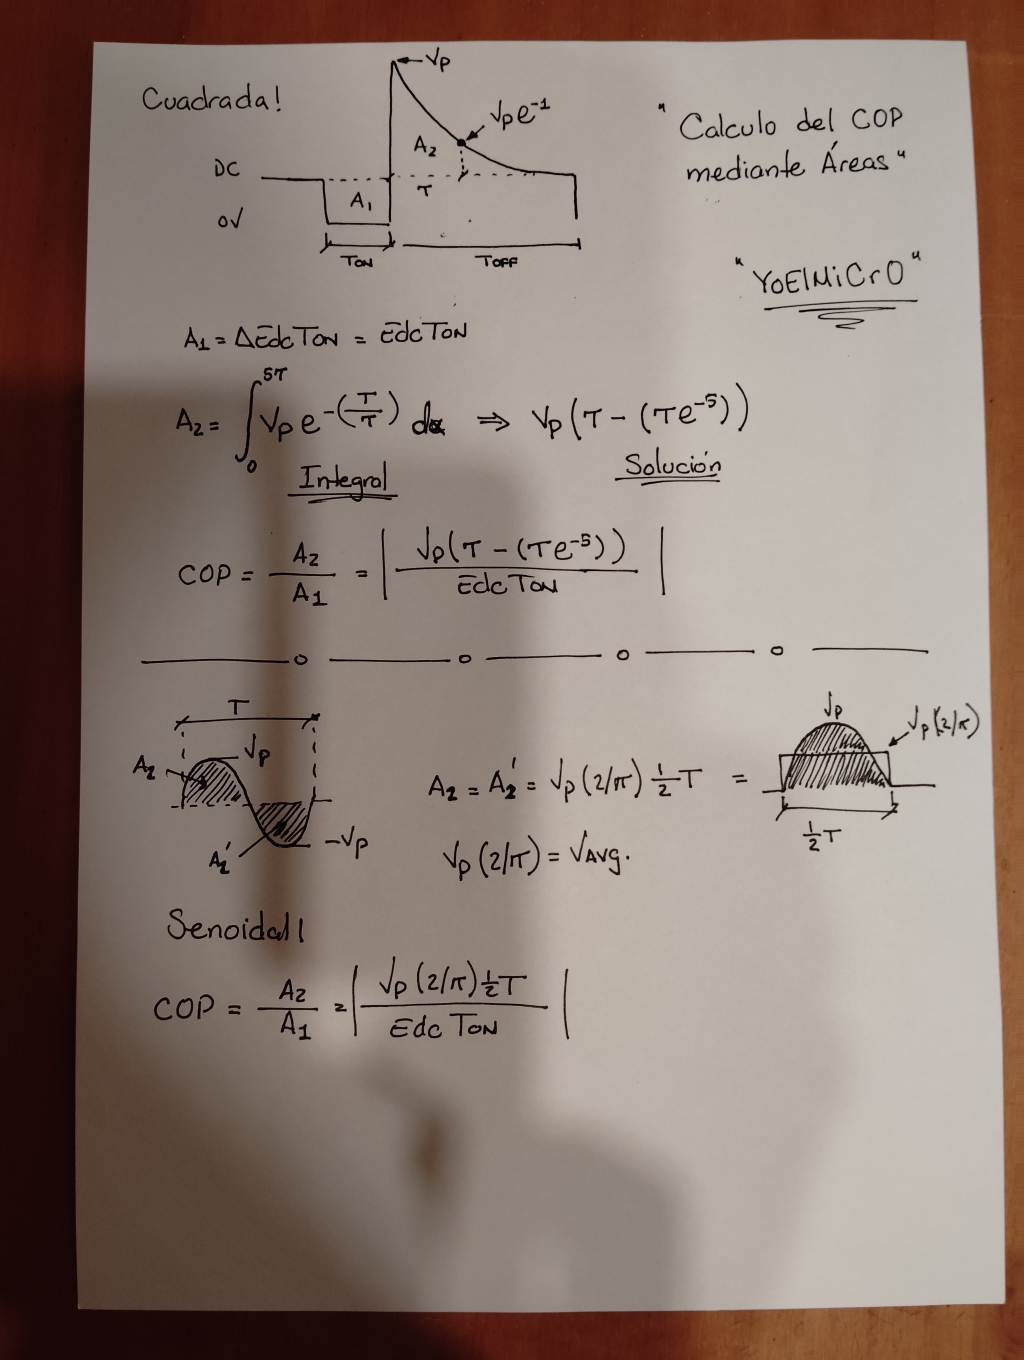 Cuadrada!
Vp
Vp e⁻¹
"Calculo del COP
mediante Áreas"
DC
A₂
τ
A₁
0V
TON
TOFF
"YoElMiCrO"
A₁ = ΔEdc TON = Edc TON
A₂ = ∫₀^5τ Vp e^-(T/τ) dx ⇒ Vp(τ - (τe⁻⁵))
Integral
Solución
COP = A₂/A₁ = | Vp(τ - (τe⁻⁵)) / Edc TON |
T
A₂
Vp
A₂'
-Vp
A₂ = A₂' = Vp(2/π) ½T =
Vp
Vp(2/π)
½T
Vp(2/π) = VAvg.
Senoidal!
COP = A₂/A₁ = | Vp(2/π)½T / Edc TON |